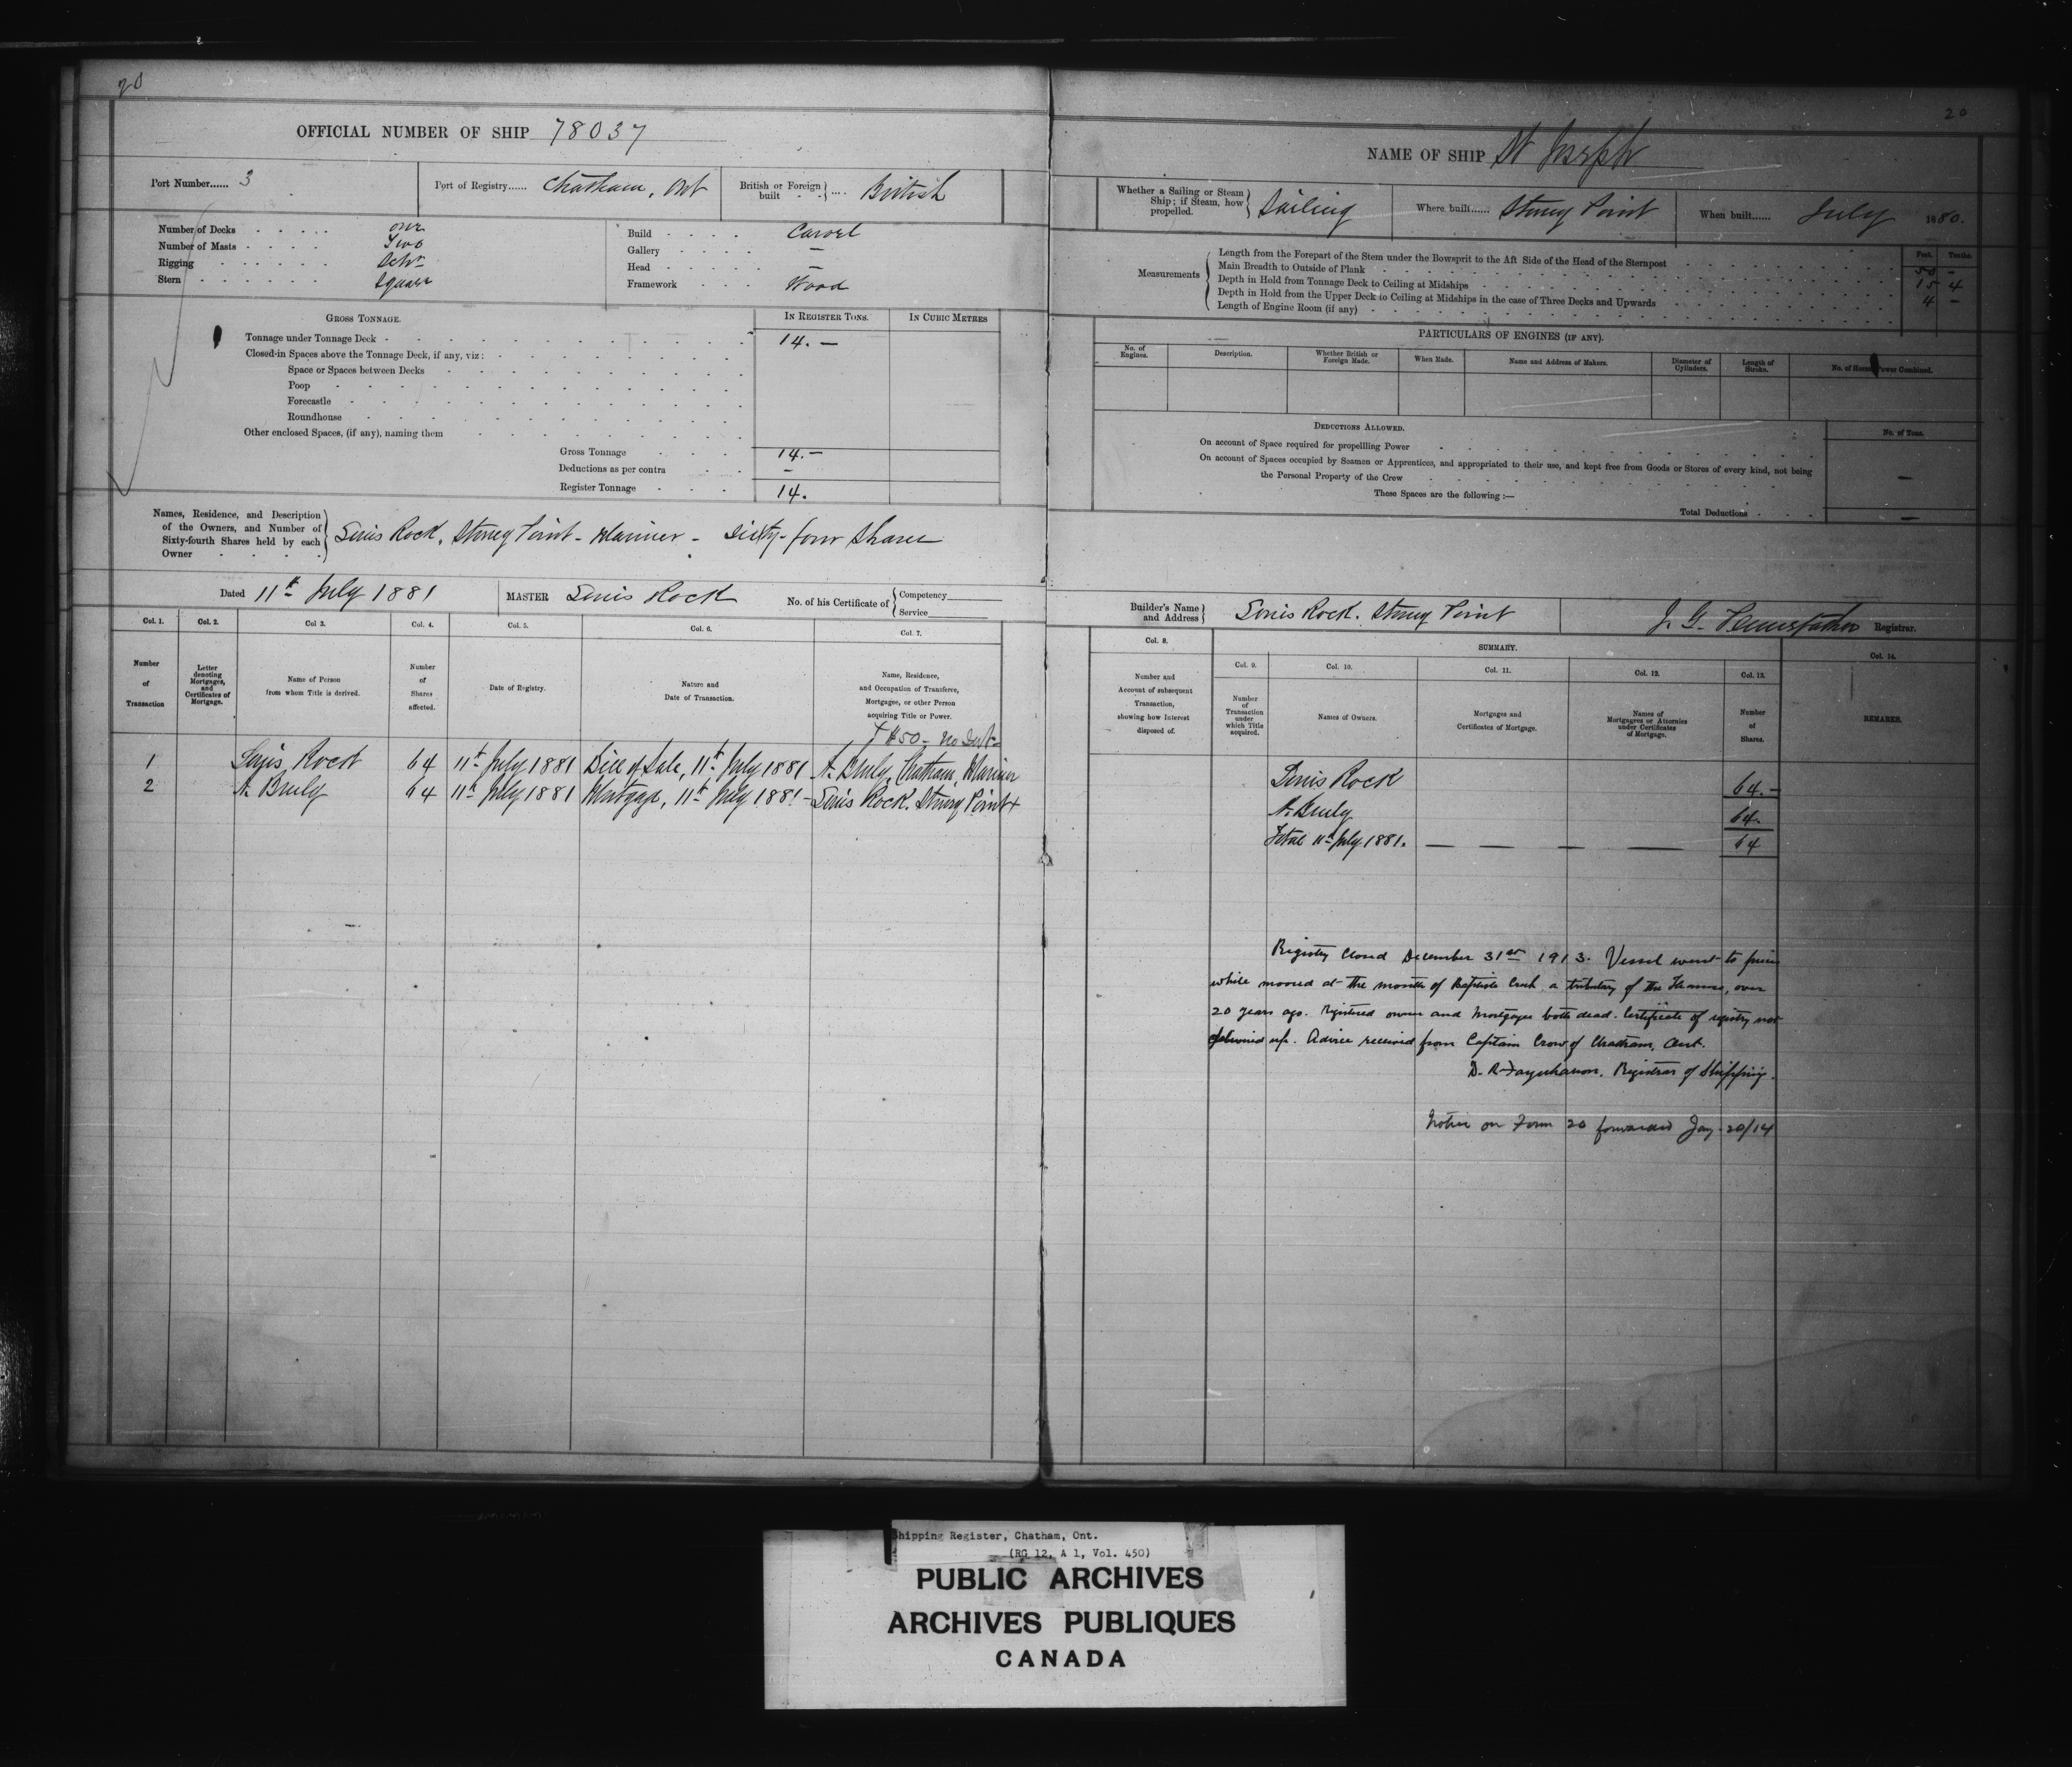 20
OFFICIAL NUMBER OF SHIP 78037
Port Number...... 3
Port of Registry...... Chatham, Ont
British or Foreign built .... British
Number of Decks one
Number of Masts Two
Rigging Schr
Stern Square
Build Carvel
Gallery —
Head —
Framework Wood
GROSS TONNAGE.
IN REGISTER TONS.
IN CUBIC METRES
Tonnage under Tonnage Deck 14. —
Closed-in Spaces above the Tonnage Deck, if any, viz:
Space or Spaces between Decks
Poop
Forecastle
Roundhouse
Other enclosed Spaces, (if any), naming them
Gross Tonnage 14. —
Deductions as per contra —
Register Tonnage 14.
Names, Residence, and Description
of the Owners, and Number of
Sixty-fourth Shares held by each
Owner
Rock, Stoney Point - Mariner - Sixty-four Shares
Dated 11th July 1881
MASTER Rock
No. of his Certificate of
Competency
Service
Col. 1.
Col. 2.
Col 3.
Col. 4.
Col. 5.
Col. 6.
Col. 7.
Number
of
Transaction
Letter
denoting
Mortgages,
and
Certificates of
Mortgage.
Name of Person
from whom Title is derived.
Number
of
Shares
affected.
Date of Registry.
Nature and
Date of Transaction.
Name, Residence,
and Occupation of Transferee,
Mortgagee, or other Person
acquiring Title or Power.
$50 - no Int
1 Rock 64 11th July 1881 Bill of Sale, 11th July 1881 Chatham, Mariner
2 64 11th July 1881 Mortgage, 11th July 1881 - Rock. Stoney Point +
20
NAME OF SHIP St Joseph
Whether a Sailing or Steam
Ship; if Steam, how
propelled.
Sailing
Where built...... Stoney Point
When built...... July 1880.
Measurements
Feet. Tenths.
Length from the Forepart of the Stem under the Bowsprit to the Aft Side of the Head of the Sternpost 50 -
Main Breadth to Outside of Plank 15 4
Depth in Hold from Tonnage Deck to Ceiling at Midships 4 -
Depth in Hold from the Upper Deck to Ceiling at Midships in the case of Three Decks and Upwards
Length of Engine Room (if any)
PARTICULARS OF ENGINES (IF ANY).
No. of
Engines.
Description.
Whether British or
Foreign Made.
When Made.
Name and Address of Makers.
Diameter of
Cylinders.
Length of
Stroke.
No. of Horse Power Combined.
DEDUCTIONS ALLOWED.
No. of Tons.
On account of Space required for propellling Power
On account of Spaces occupied by Seamen or Apprentices, and appropriated to their use, and kept free from Goods or Stores of every kind, not being
the Personal Property of the Crew —
These Spaces are the following :—
Total Deductions —
Builder's Name
and Address
Rock. Stoney Point
J. G. Registrar.
Col. 8.
SUMMARY.
Col. 14.
Col. 9.
Col. 10.
Col. 11.
Col. 12.
Col. 13.
Number and
Account of subsequent
Transaction,
showing how Interest
disposed of.
Number
of
Transaction
under
which Title
acquired.
Names of Owners.
Mortgages and
Certificates of Mortgage.
Names of
Mortgagees or Attornies
under Certificates
of Mortgage.
Number
of
Shares.
REMARKS.
Rock 64. —
64.
Total 11th July 1881. — — — — 64
Registry closed December 31st 1913. Vessel went to pieces
while moored at the mouth of Baptiste Creek a tributary of the Thames, over
20 years ago. Registered owner and mortgagee both dead. Certificate of registry not
delivered up. Advice received from Captain Crow of Chatham, Ont.
D. R. Farquharson. Registrar of Shipping.
Notice on Form 20 forwarded Jan 20/14
Shipping Register, Chatham, Ont.
(RG 12, A 1, Vol. 450)
PUBLIC ARCHIVES
ARCHIVES PUBLIQUES
CANADA